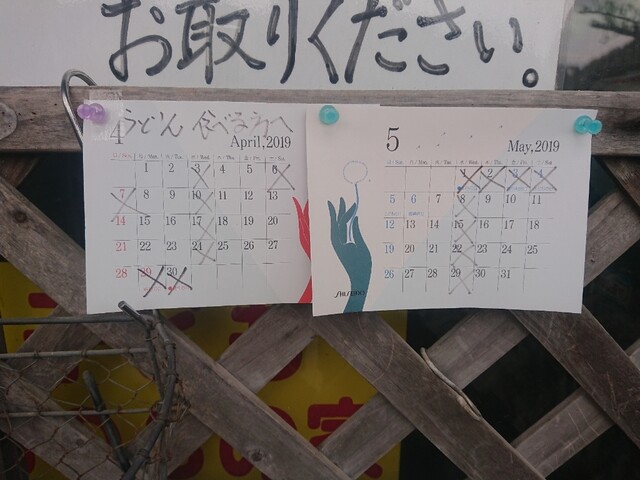 お取りください。
4
うどん 食べる方へ
April,2019
1 2 3 4 5 6
7 8 9 10 11 12 13
14 15 16 17 18 19 20
21 22 23 24 25 26 27
28 29 30
5
May,2019
1 2 3 4
5 6 7 8 9 10 11
12 13 14 15 16 17 18
19 20 21 22 23 24 25
26 27 28 29 30 31
SHISEIDO